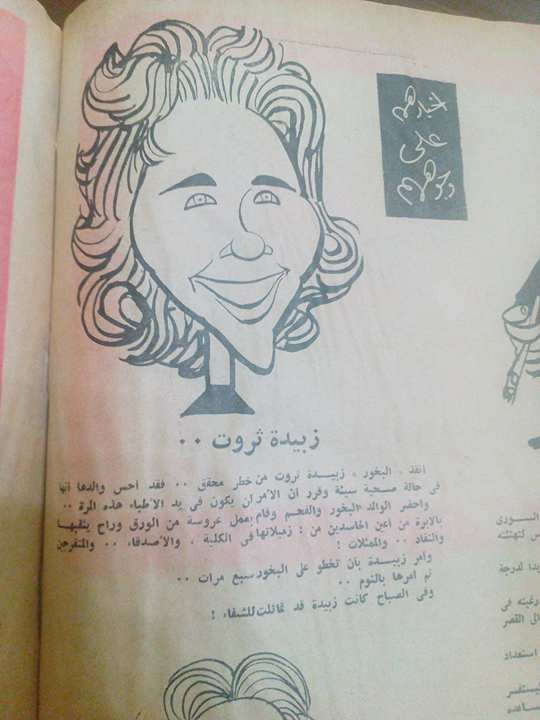 أخبارهم
على
وجوههم
زبيدة ثروت ..
أنقذ « البخور » زبيدة ثروت من خطر محقق .. فقد أحس والدها أنها
فى حالة صحية سيئة وقرر أن الأمر لن يكون فى يد الأطباء هذه المرة ..
وأحضر الوالد البخور والفحم وقام بعمل عروسة من الورق وراح يثقبها
بالإبرة من أعين الحاسدين من : زميلاتها فى الكلية ، والأصدقاء .. والمتفرجين
والنقاد .. والممثلات !
وأمر زبيدة بأن تخطو على البخور سبع مرات ..
ثم أمرها بالنوم ..
وفى الصباح كانت زبيدة قد تماثلت للشفاء !
السورى
س لتهنئته
يدا لدرجة
رغبته فى
الى القصر
استعداد
ليستفسر
ساعده